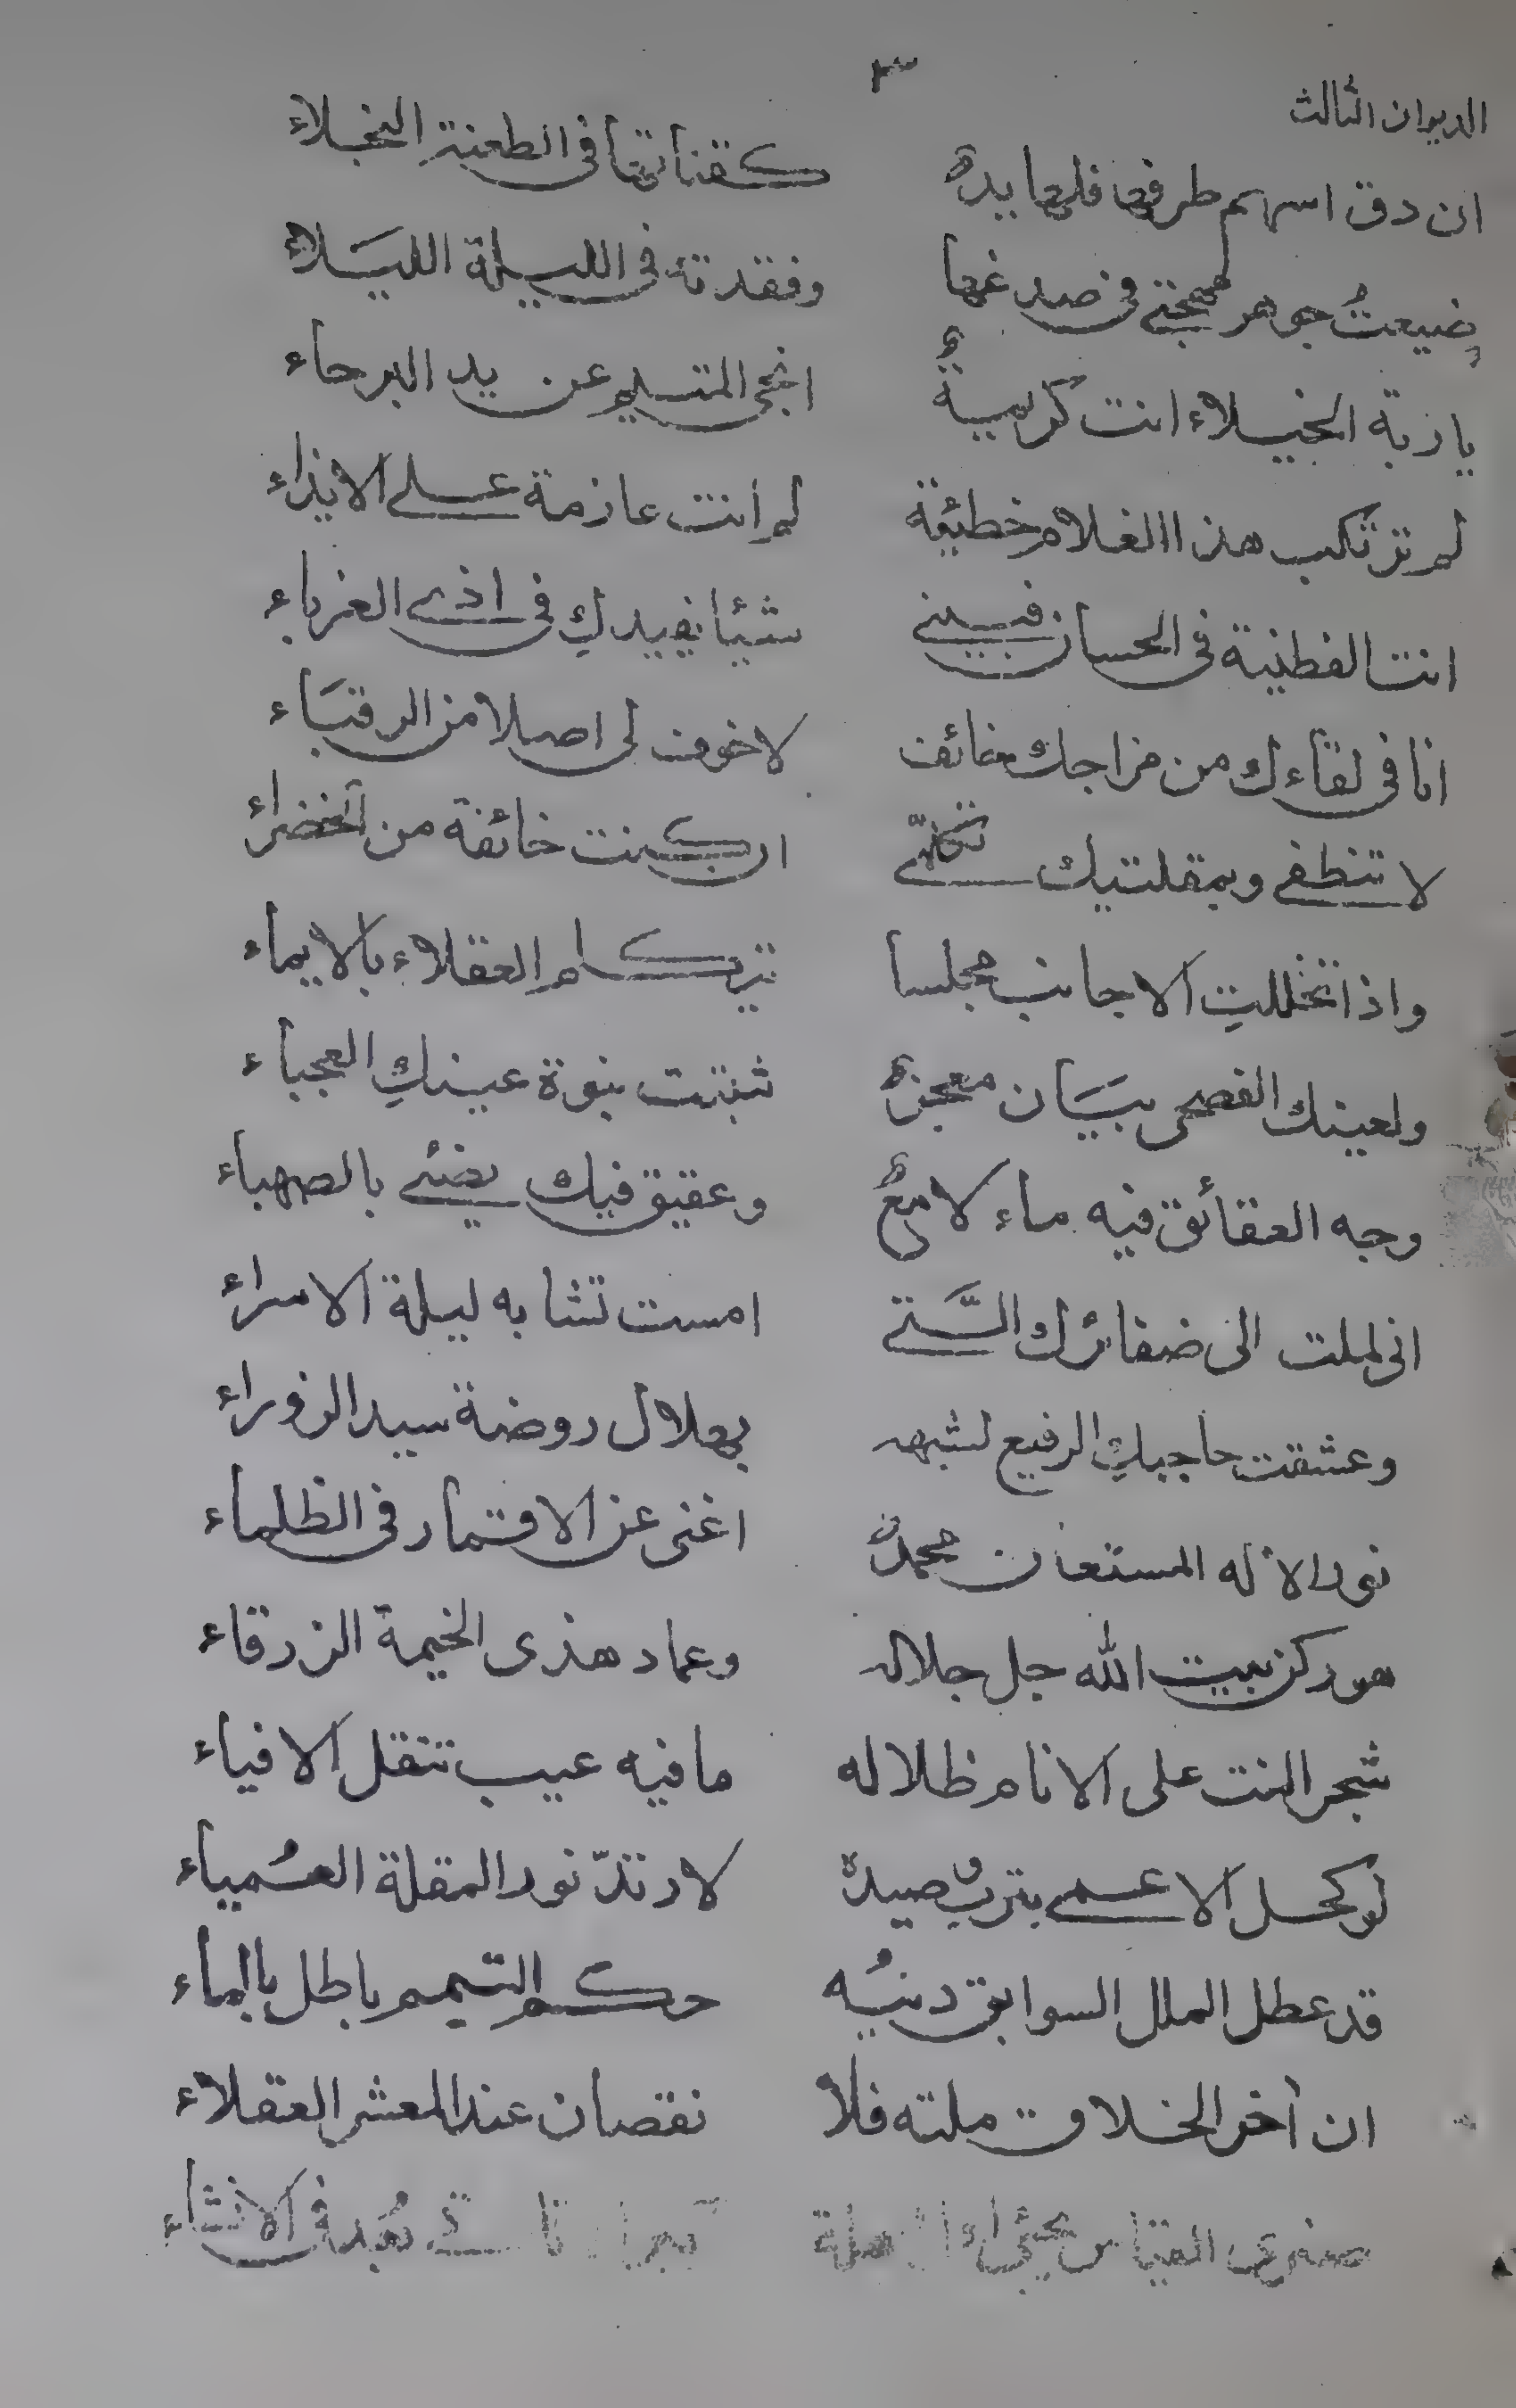 ٣
الديوان الثالث
ان دق اسهم طرفها فلها يد كقناتها فى الطعنة النجلاء
ضيعتُ جوهر مهجتى فى صدغها وفقدته فى الليلة الليَلاء
يا ربة الخيلاء انت كريمةٌ انجى المتيم عن يد البرحاء
لم ترتكب هذا الغلام خطيئة لم انت عازمة على الايذاء
انت الفطينة فى الحسان فبينى شيئا يفيدكِ فى اذى الغرباء
انا فى لقاءك من مزاجك خائف لا خوف لى اصلا من الرقبَاء
لا تنطقى وبمقلتيك تكلّمى ان كنت خائفة من الخضراء
واذا تخللتِ الاجانب مجلسا تركا العقلاء بالايماء
ولعينك الفصحى بيَان معجز ثبتت بنوة عينكِ العجباء
وجه العقائق فيه ماء لامعٌ وعقيق فيك يضئى بالصهباء
انى لملت الى ضفائرك الَّتى امست تشابه ليلة الاسراء
وعشقت حاجبكِ الرفيع لشبهه بهلال روضة سيد الزوراء
نور الاله المستعان محمد اغنى عن الاقمار فى الظلماء
هو ركن بيت الله جل جلاله وعماد هذى الخيمة الزرقاء
شجر النت على الانام ظلاله ما فيه عيب تنقل الافياء
لو كحل الاعمى بترب صيده لارتدّ نور المقلة العمياء
قد عطل الملل السوابق دينُه حكم التيمم باطل بالماء
ان اخر الخلاق ملته فلا نقصان عند المعشر العقلاء
صغرى القياس يجئى اولا فى الانشاء